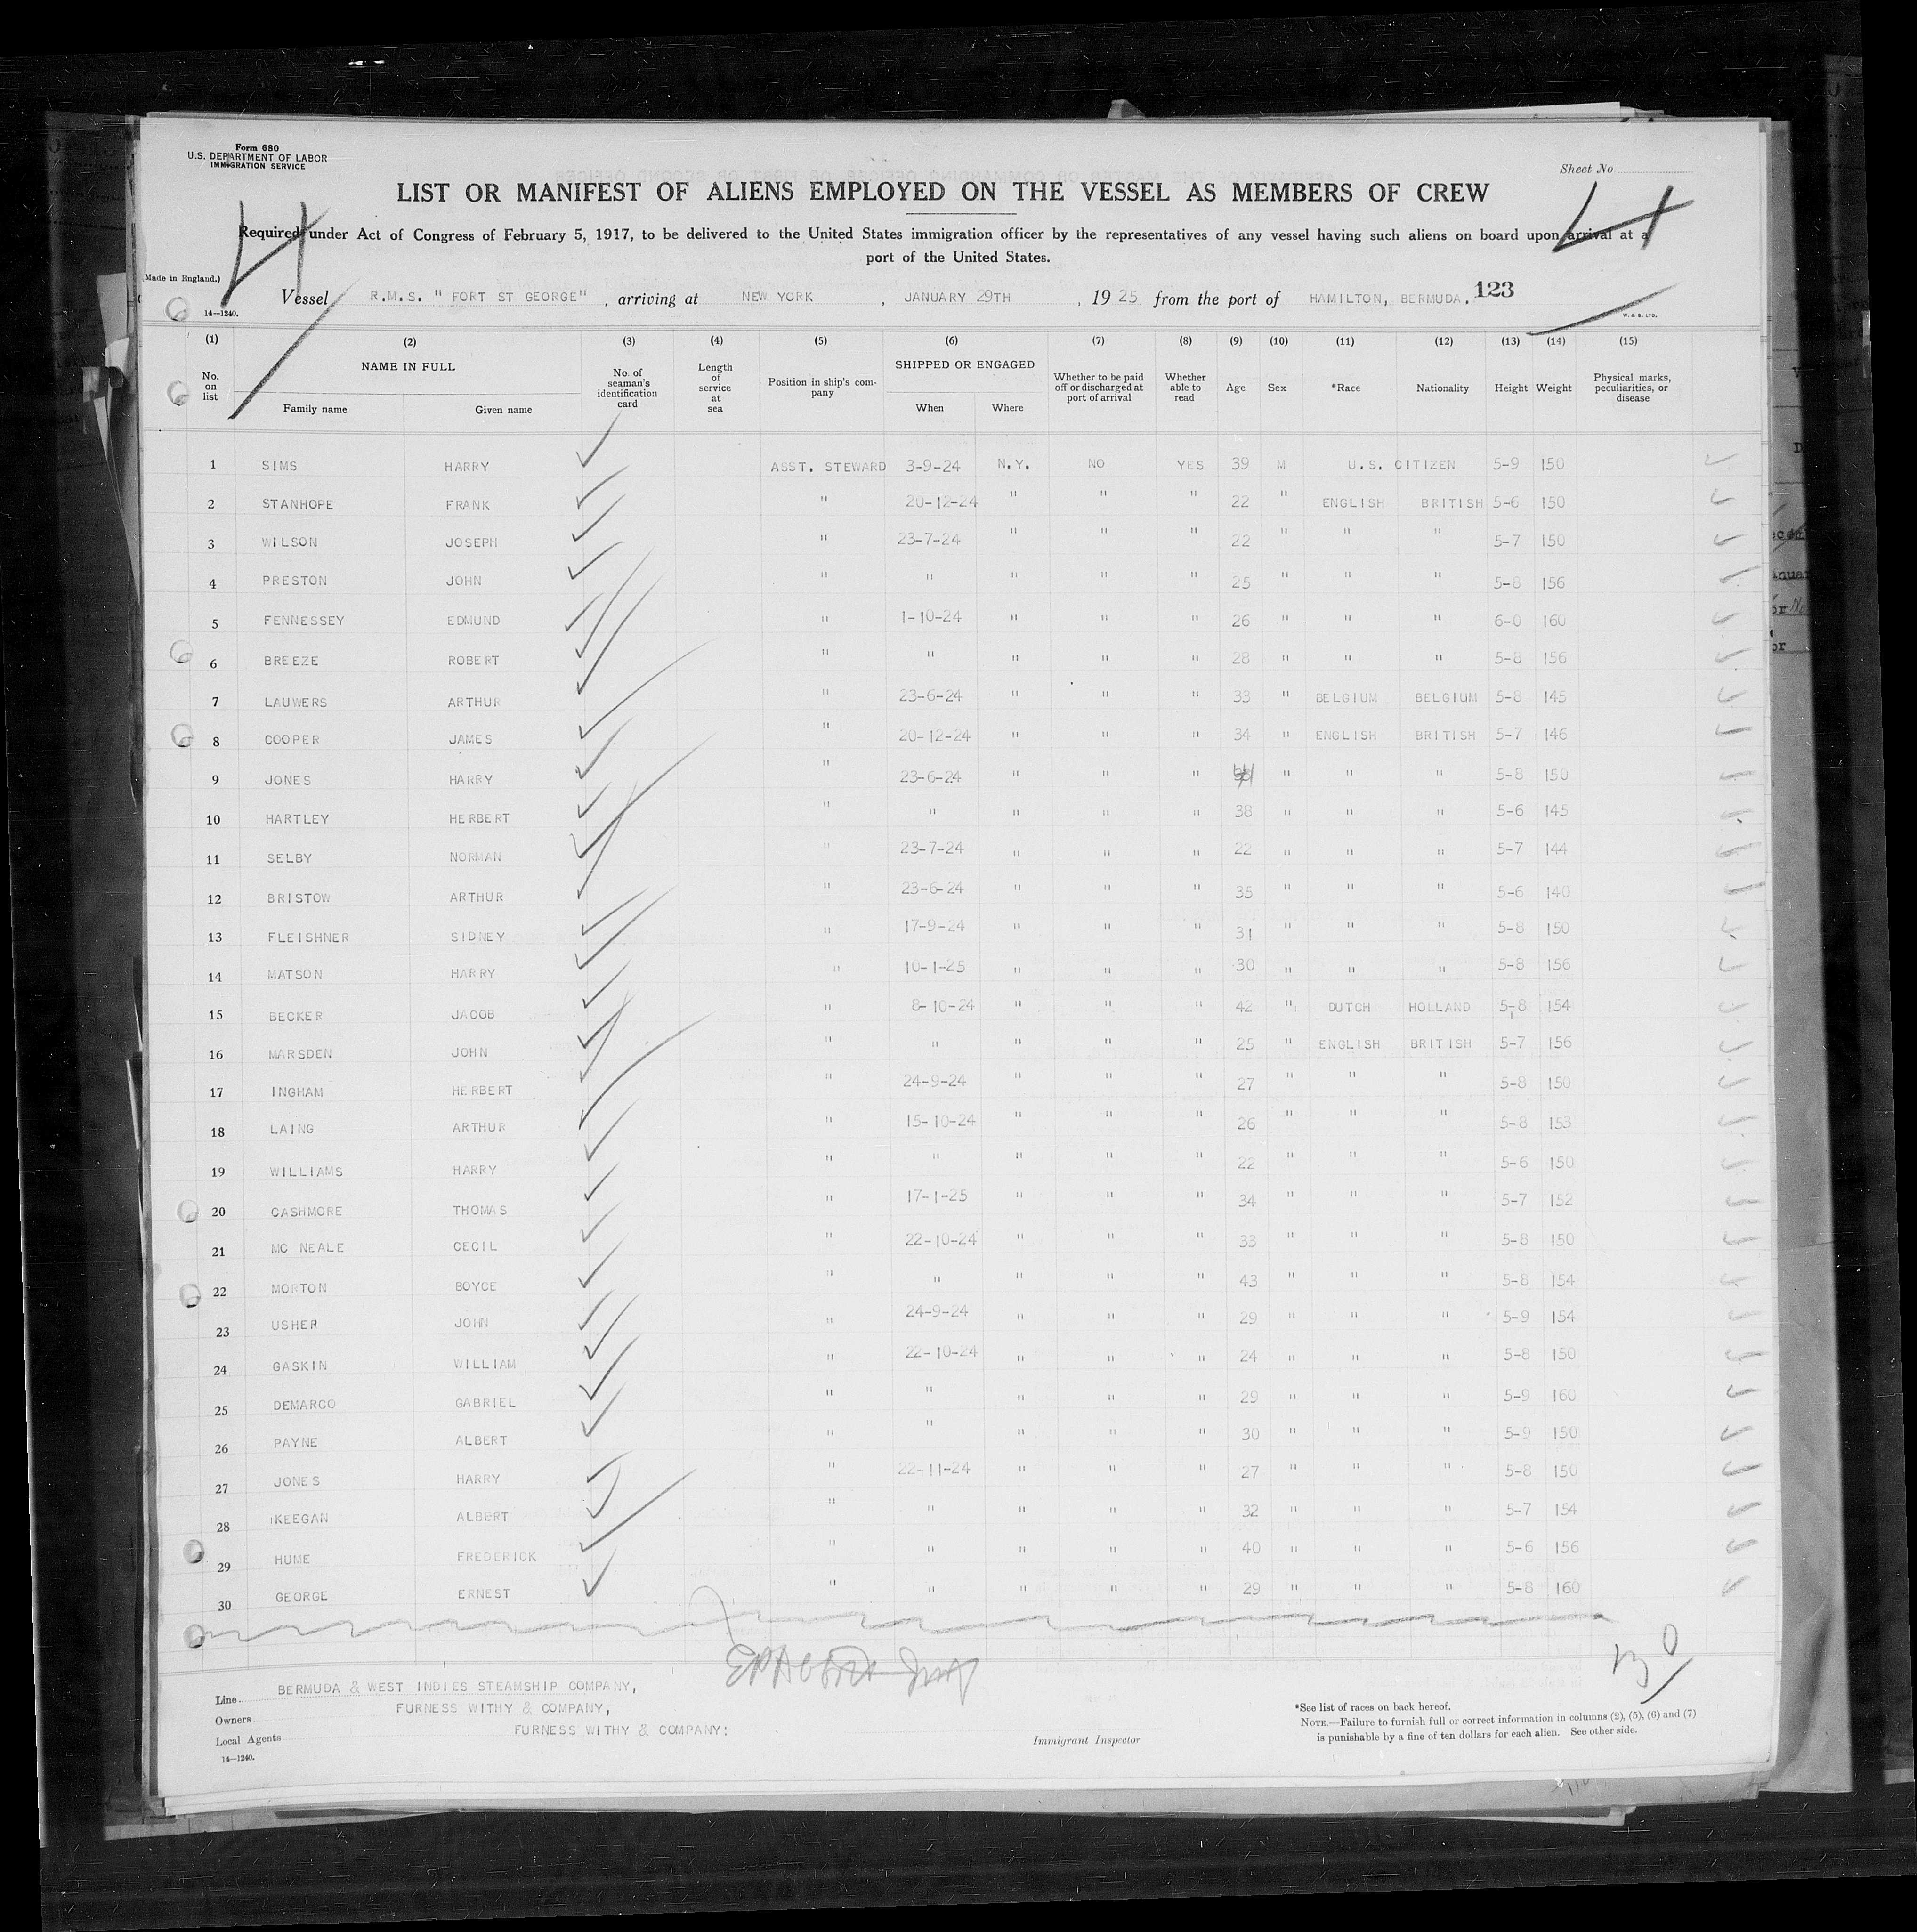 Form 680
U.S. DEPARTMENT OF LABOR
IMMIGRATION SERVICE
Sheet No
LIST OR MANIFEST OF ALIENS EMPLOYED ON THE VESSEL AS MEMBERS OF CREW
Required under Act of Congress of February 5, 1917, to be delivered to the United States immigration officer by the representatives of any vessel having such aliens on board upon arrival at a
port of the United States.
(Made in England.)
Vessel R.M.S. " FORT ST GEORGE" , arriving at NEW YORK , JANUARY 29TH , 1925 from the port of HAMILTON, BERMUDA. 123
14—1240. W. & S. LTD.
(1) (2) (3) (4) (5) (6) (7) (8) (9) (10) (11) (12) (13) (14) (15)
No. on list NAME IN FULL Family name Given name No. of seaman's identification card Length of service at sea Position in ship's company SHIPPED OR ENGAGED When Where Whether to be paid off or discharged at port of arrival Whether able to read Age Sex *Race Nationality Height Weight Physical marks, peculiarities, or disease
1 SIMS HARRY ASST. STEWARD 3-9-24 N.Y. NO YES 39 M U.S. CITIZEN 5-9 150
2 STANHOPE FRANK " 20-12-24 " " " 22 " ENGLISH BRITISH 5-6 150
3 WILSON JOSEPH " 23-7-24 " " " 22 " " " 5-7 150
4 PRESTON JOHN " " " " " 25 " " " 5-8 156
5 FENNESSEY EDMUND " 1-10-24 " " " 26 " " " 6-0 160
6 BREEZE ROBERT " " " " " 28 " " " 5-8 156
7 LAUWERS ARTHUR " 23-6-24 " " " 33 " BELGIUM BELGIUM 5-8 145
8 COOPER JAMES " 20-12-24 " " " 34 " ENGLISH BRITISH 5-7 146
9 JONES HARRY " 23-6-24 " " " " " " 5-8 150
10 HARTLEY HERBERT " " " " " 38 " " " 5-6 145
11 SELBY NORMAN " 23-7-24 " " " 22 " " " 5-7 144
12 BRISTOW ARTHUR " 23-6-24 " " " 35 " " " 5-6 140
13 FLEISHNER SIDNEY " 17-9-24 " " " 31 " " " 5-8 150
14 MATSON HARRY " 10-1-25 " " " 30 " " " 5-8 156
15 BECKER JACOB " 8-10-24 " " " 42 " DUTCH HOLLAND 5-8 154
16 MARSDEN JOHN " " " " " 25 " ENGLISH BRITISH 5-7 156
17 INGHAM HERBERT " 24-9-24 " " " 27 " " " 5-8 150
18 LAING ARTHUR " 15-10-24 " " " 26 " " " 5-8 153
19 WILLIAMS HARRY " " " " " 22 " " " 5-6 150
20 CASHMORE THOMAS " 17-1-25 " " " 34 " " " 5-7 152
21 MC NEALE CECIL " 22-10-24 " " " 33 " " " 5-8 150
22 MORTON BOYCE " " " " " 43 " " " 5-8 154
23 USHER JOHN " 24-9-24 " " " 29 " " " 5-9 154
24 GASKIN WILLIAM " 22-10-24 " " " 24 " " " 5-8 150
25 DEMARCO GABRIEL " " " " " 29 " " " 5-9 160
26 PAYNE ALBERT " " " " " 30 " " " 5-9 150
27 JONES HARRY " 22-11-24 " " " 27 " " " 5-8 150
28 KEEGAN ALBERT " " " " " 32 " " " 5-7 154
29 HUME FREDERICK " " " " " 40 " " " 5-6 156
30 GEORGE ERNEST " " " " " 29 " " " 5-8 160
Line BERMUDA & WEST INDIES STEAMSHIP COMPANY,
Owners FURNESS WITHY & COMPANY,
Local Agents FURNESS WITHY & COMPANY:
14—1240.
Immigrant Inspector
*See list of races on back hereof.
NOTE.—Failure to furnish full or correct information in columns (2), (5), (6) and (7)
is punishable by a fine of ten dollars for each alien. See other side.